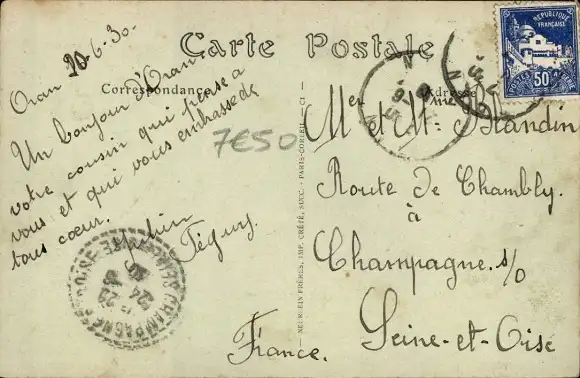 Carte Postale
Correspondance
Adresse
Oran 20-6-30-
Un bonjour d'Oran
votre cousin qui pense a
vous et qui vous embrasse de
tous cœur.
7€50
REPUBLIQUE
FRANÇAISE
POSTES
50c
ALGERIE
Mer et Mme
Route de Chambly.
à
Champagne s/o
Seine-et-Oise
France.
NEURDEIN FRÈRES, IMP. CRÉTÉ, SUCC. - PARIS-CORBEIL - C1
CHAMPAGNE SEINE-ET-OISE